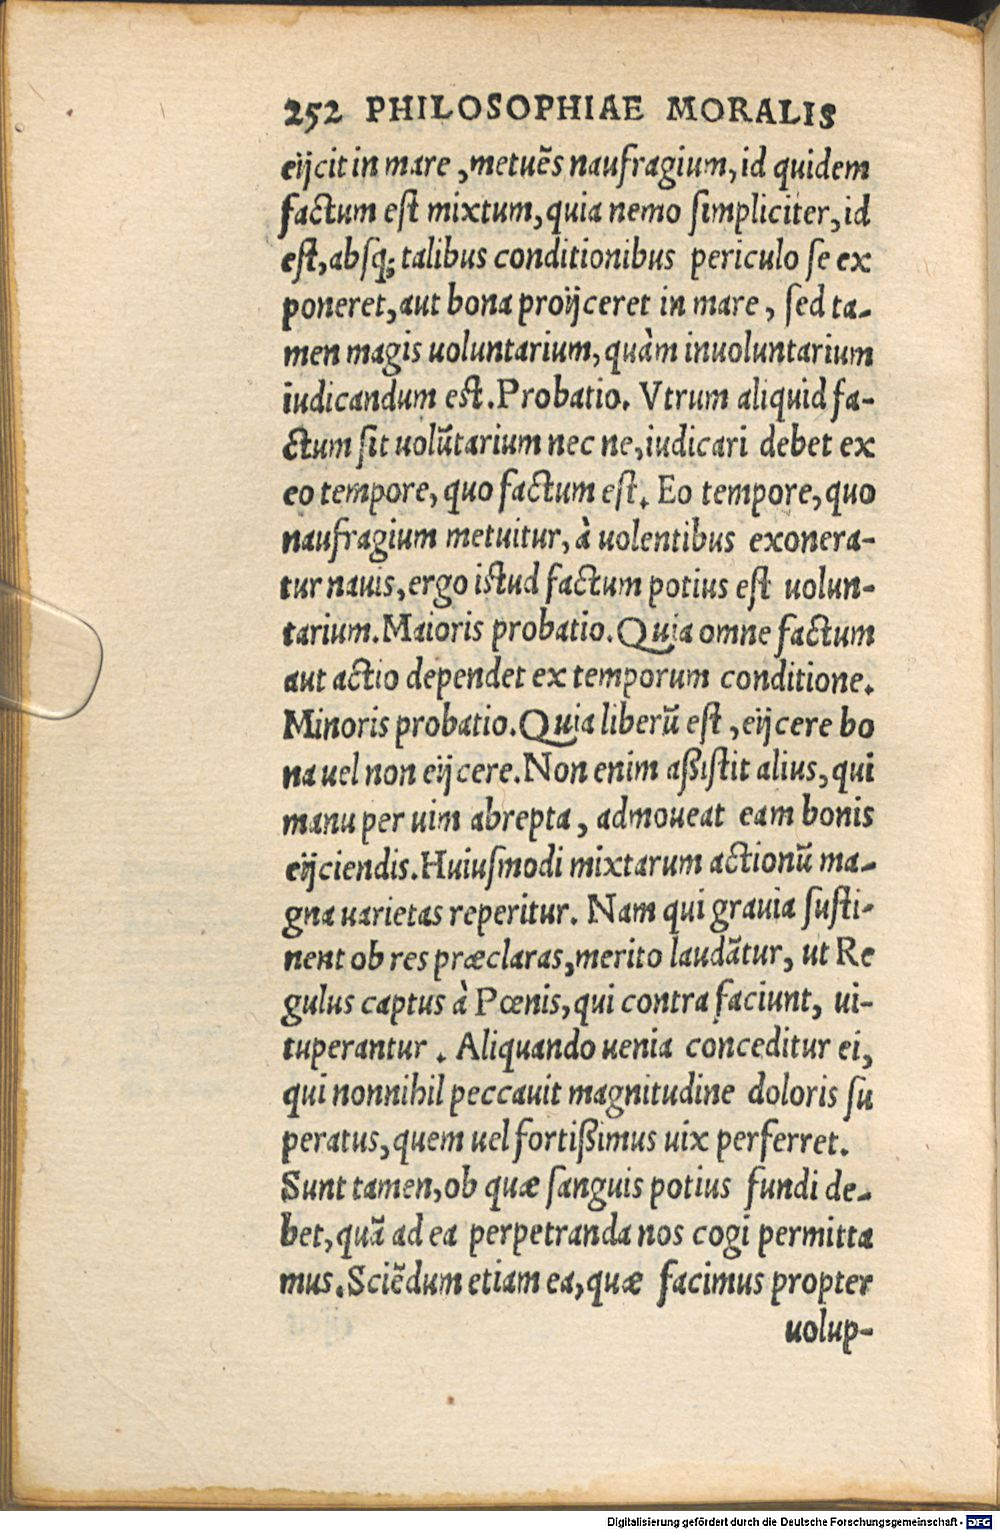 252 PHILOSOPHIAE MORALIS
eijcit in mare, metuēs naufragium, id quidem
factum est mixtum, quia nemo simpliciter, id
est, absq; talibus conditionibus periculo se ex
poneret, aut bona proijceret in mare, sed ta-
men magis uoluntarium, quàm inuoluntarium
iudicandum est. Probatio. Vtrum aliquid fa-
ctum sit uolūtarium nec ne, iudicari debet ex
eo tempore, quo factum est. Eo tempore, quo
naufragium metuitur, à uolentibus exonera-
tur nauis, ergo istud factum potius est uolun-
tarium. Maioris probatio. Quia omne factum
aut actio dependet ex temporum conditione.
Minoris probatio. Quia liberū est, eijcere bo
na uel non eijcere. Non enim aßistit alius, qui
manu per uim abrepta, admoueat eam bonis
eijciendis. Huiusmodi mixtarum actionū ma-
gna uarietas reperitur. Nam qui grauia susti-
nent ob res præclaras, merito laudātur, ut Re
gulus captus à Pœnis, qui contra faciunt, ui-
tuperantur. Aliquando uenia conceditur ei,
qui nonnihil peccauit magnitudine doloris su
peratus, quem uel fortißimus uix perferret.
Sunt tamen, ob quæ sanguis potius fundi de-
bet, quā ad ea perpetranda nos cogi permitta
mus. Sciēdum etiam ea, quæ facimus propter
uolup-
Digitalisierung gefördert durch die Deutsche Forschungsgemeinschaft - DFG